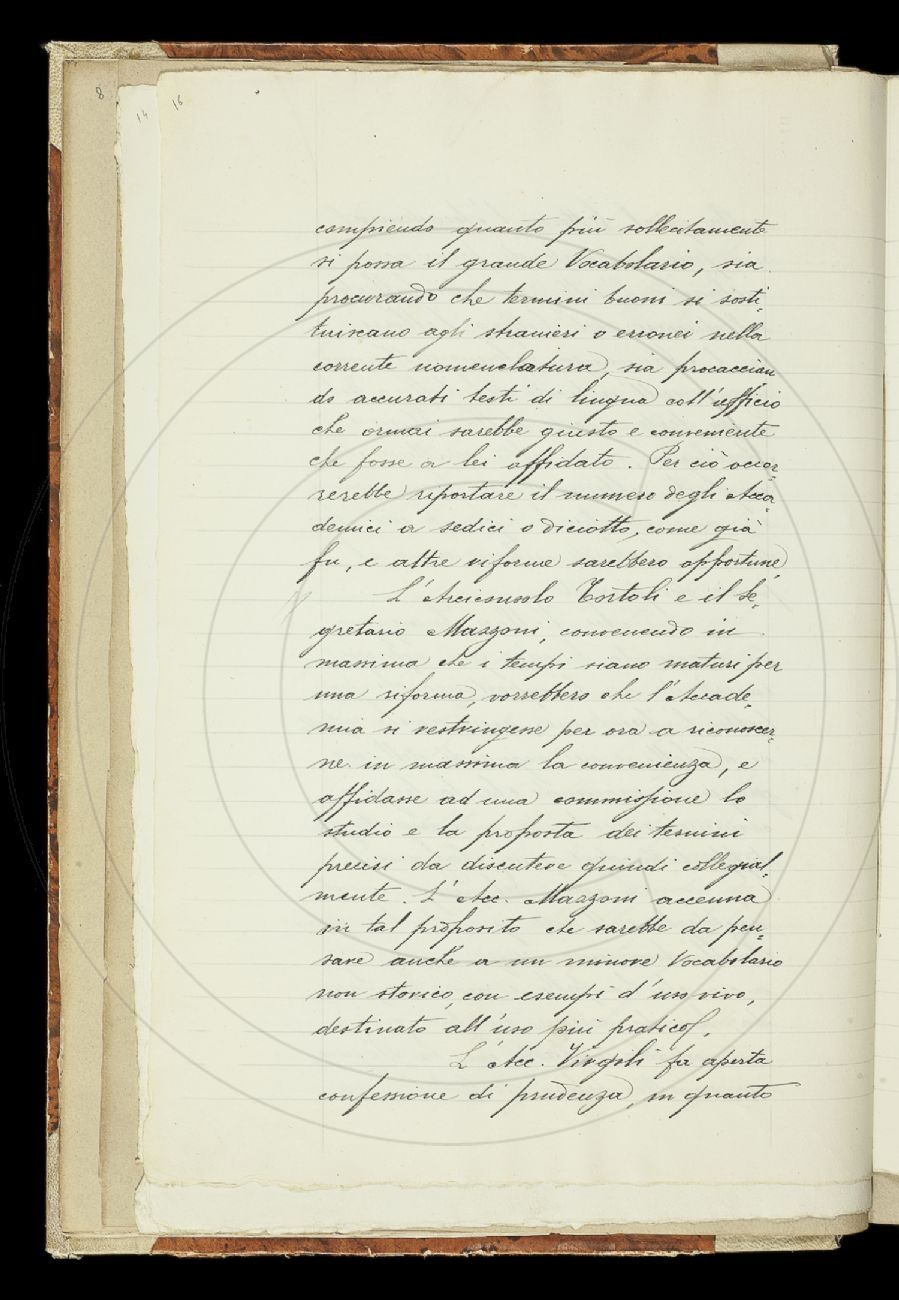 8
14
16
compiendo quanto più sollecitamente
si possa il grande Vocabolario, sia
procurando che termini buoni si sosti-
tuiscano agli stranieri o erronei nella
corrente nomenclatura, sia procaccian
do accurati testi di lingua coll'ufficio
che ormai sarebbe giusto e conveniente
che fosse a lei affidato. Per ciò occor-
rerebbe riportare il numero degli Acca-
demici a sedici o diciotto, come già
fu, e altre riforme sarebbero opportune.
L'Arciconsolo Tortoli e il Se-
gretario Mazzoni, convenendo in
massima che i tempi siano maturi per
una riforma, vorrebbero che l'Accade-
mia si restringesse per ora a riconoscer-
ne in massima la convenienza, e
affidasse ad una commissione lo
studio e la proposta dei termini
precisi da discutere quindi collegial-
mente. L'Acc. Mazzoni accenna
in tal proposito che sarebbe da pen-
sare anche a un minore Vocabolario
non storico, con esempi d'uso vivo,
destinato all'uso più pratico.
L'Acc. Virgili fa aperta
confessione di prudenza, in quanto